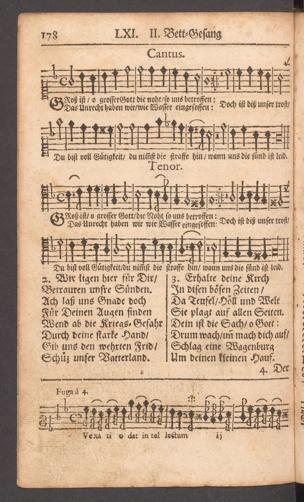 178 LXI. II. Bett-Gesang
Cantus.
GRoß ist/ o grosser Gott die noht/ so uns betroffen: Doch ist diß unser trost/
Das Unrecht haben wir/ wie Wasser eingesoffen:
Du bist voll Gütigkeit/ du nimst die straffe hin/ wann uns die sünd ist leid.
Tenor.
GRoß ist/ o grosser Gott/ die Noht so uns betroffen: Doch ist diß unser trost/
Das Unrecht haben wir wie Wasser eingesoffen:
Du bist voll Gütigkeit/ du nimst die straffe hin/ wann uns die sünd ist leid.
2. Wir ligen hier für Dir/
Betrauren unsre Sünden,
Ach laß uns Gnade doch
Für Deinen Augen finden
Wend ab die Kriegs-Gefahr
Durch deine starke Hand/
Gib uns den wehrten Frid/
Schütz unser Vatterland.
3. Erhalte deine Kirch
In disen bösen Zeiten/
Da Teufel/ Höll und Welt
Sie plagt auf allen Seiten.
Dein ist die Sach/ o Gott:
Drum wach/ uñ mach dich auf/
Schlag eine Wagenburg
Um deinen kleinen Hauf.
4. Der
Fuga à 4.
Vexa ti o dat in tel lectum ij